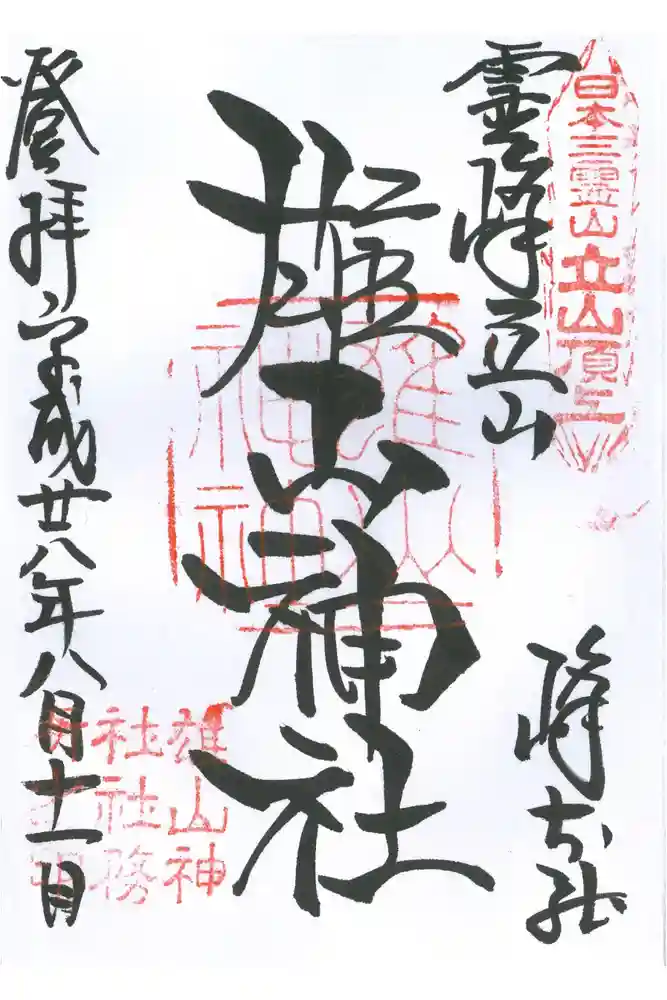 日本三霊山立山頂上
霊峰立山
峰本社
雄山神社
雄山神社
登拝平成廿八年八月十一日
雄山神
社社務